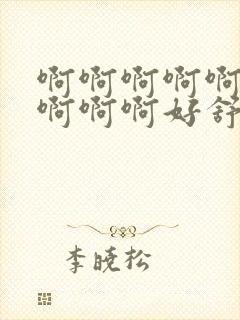 啊啊啊啊啊
啊啊啊好舒
李晓松